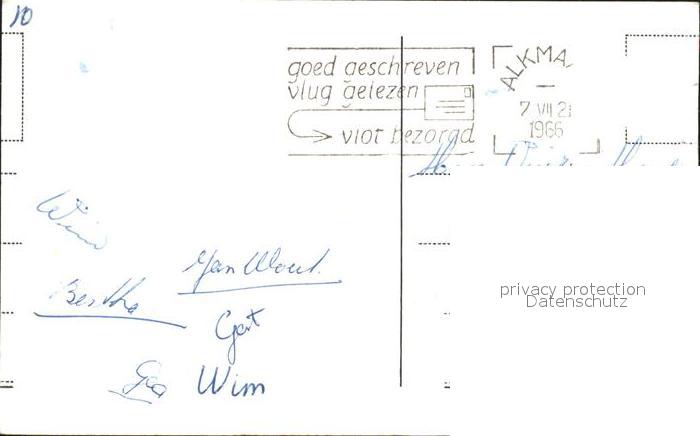 10
goed geschreven
vlug gelezen
vlot bezorgd
ALKMA
7 VII 21
1966
Wim
Jan Wout.
Bertha
Gert
Gea Wim
privacy protection
Datenschutz